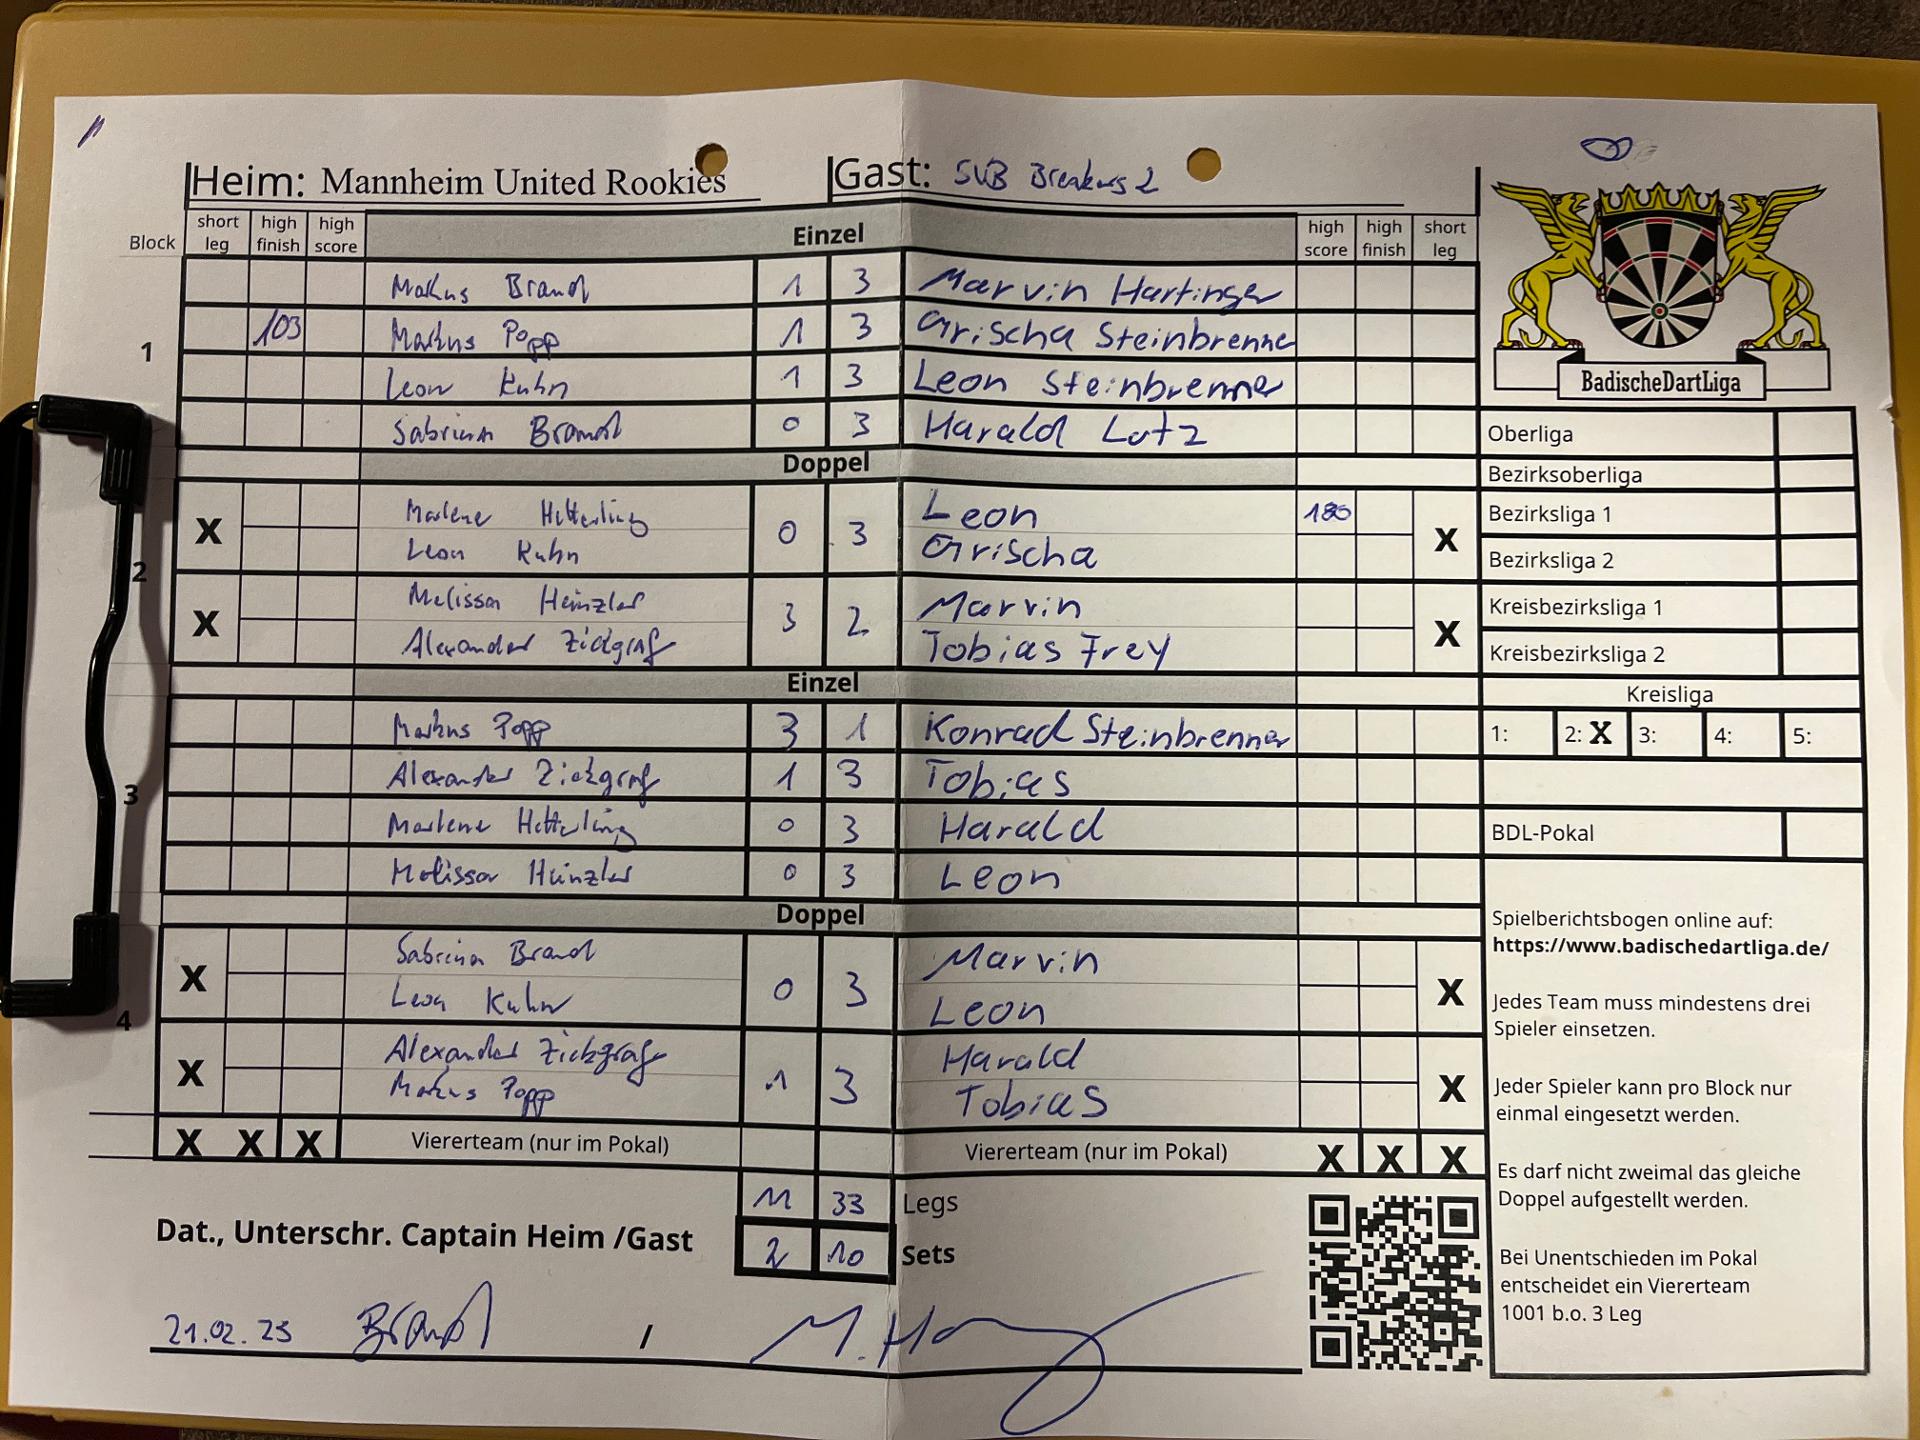 Heim: Mannheim United Rookies Gast: SVB Breakers 2
Block short leg high finish high score Einzel high score high finish short leg
1
Markus Brandl 1 3 Marvin Hartinger
103 Markus Popp 1 3 Grischa Steinbrenner
Leon Kuhn 1 3 Leon Steinbrenner
Sabrina Brandl 0 3 Harald Lotz
Doppel
2
X Marlene Hetterling 0 3 Leon 180 X
Leon Kuhn Grischa
X Melissa Heinzler 3 2 Marvin X
Alexander Zickgraf Tobias Frey
Einzel
3
Markus Popp 3 1 Konrad Steinbrenner
Alexander Zickgraf 1 3 Tobias
Marlene Hetterling 0 3 Harald
Melissa Heinzler 0 3 Leon
Doppel
4
X Sabrina Brandl 0 3 Marvin X
Leon Kuhn Leon
X Alexander Zickgraf 1 3 Harald X
Markus Popp Tobias
X X X Viererteam (nur im Pokal) Viererteam (nur im Pokal) X X X
11 33 Legs
2 10 Sets
Dat., Unterschr. Captain Heim /Gast
21.02.25 Brandl /
BadischeDartLiga
Oberliga
Bezirksoberliga
Bezirksliga 1
Bezirksliga 2
Kreisbezirksliga 1
Kreisbezirksliga 2
Kreisliga
1: 2: X 3: 4: 5:
BDL-Pokal
Spielberichtsbogen online auf:
https://www.badischedartliga.de/
Jedes Team muss mindestens drei
Spieler einsetzen.
Jeder Spieler kann pro Block nur
einmal eingesetzt werden.
Es darf nicht zweimal das gleiche
Doppel aufgestellt werden.
Bei Unentschieden im Pokal
entscheidet ein Viererteam
1001 b.o. 3 Leg